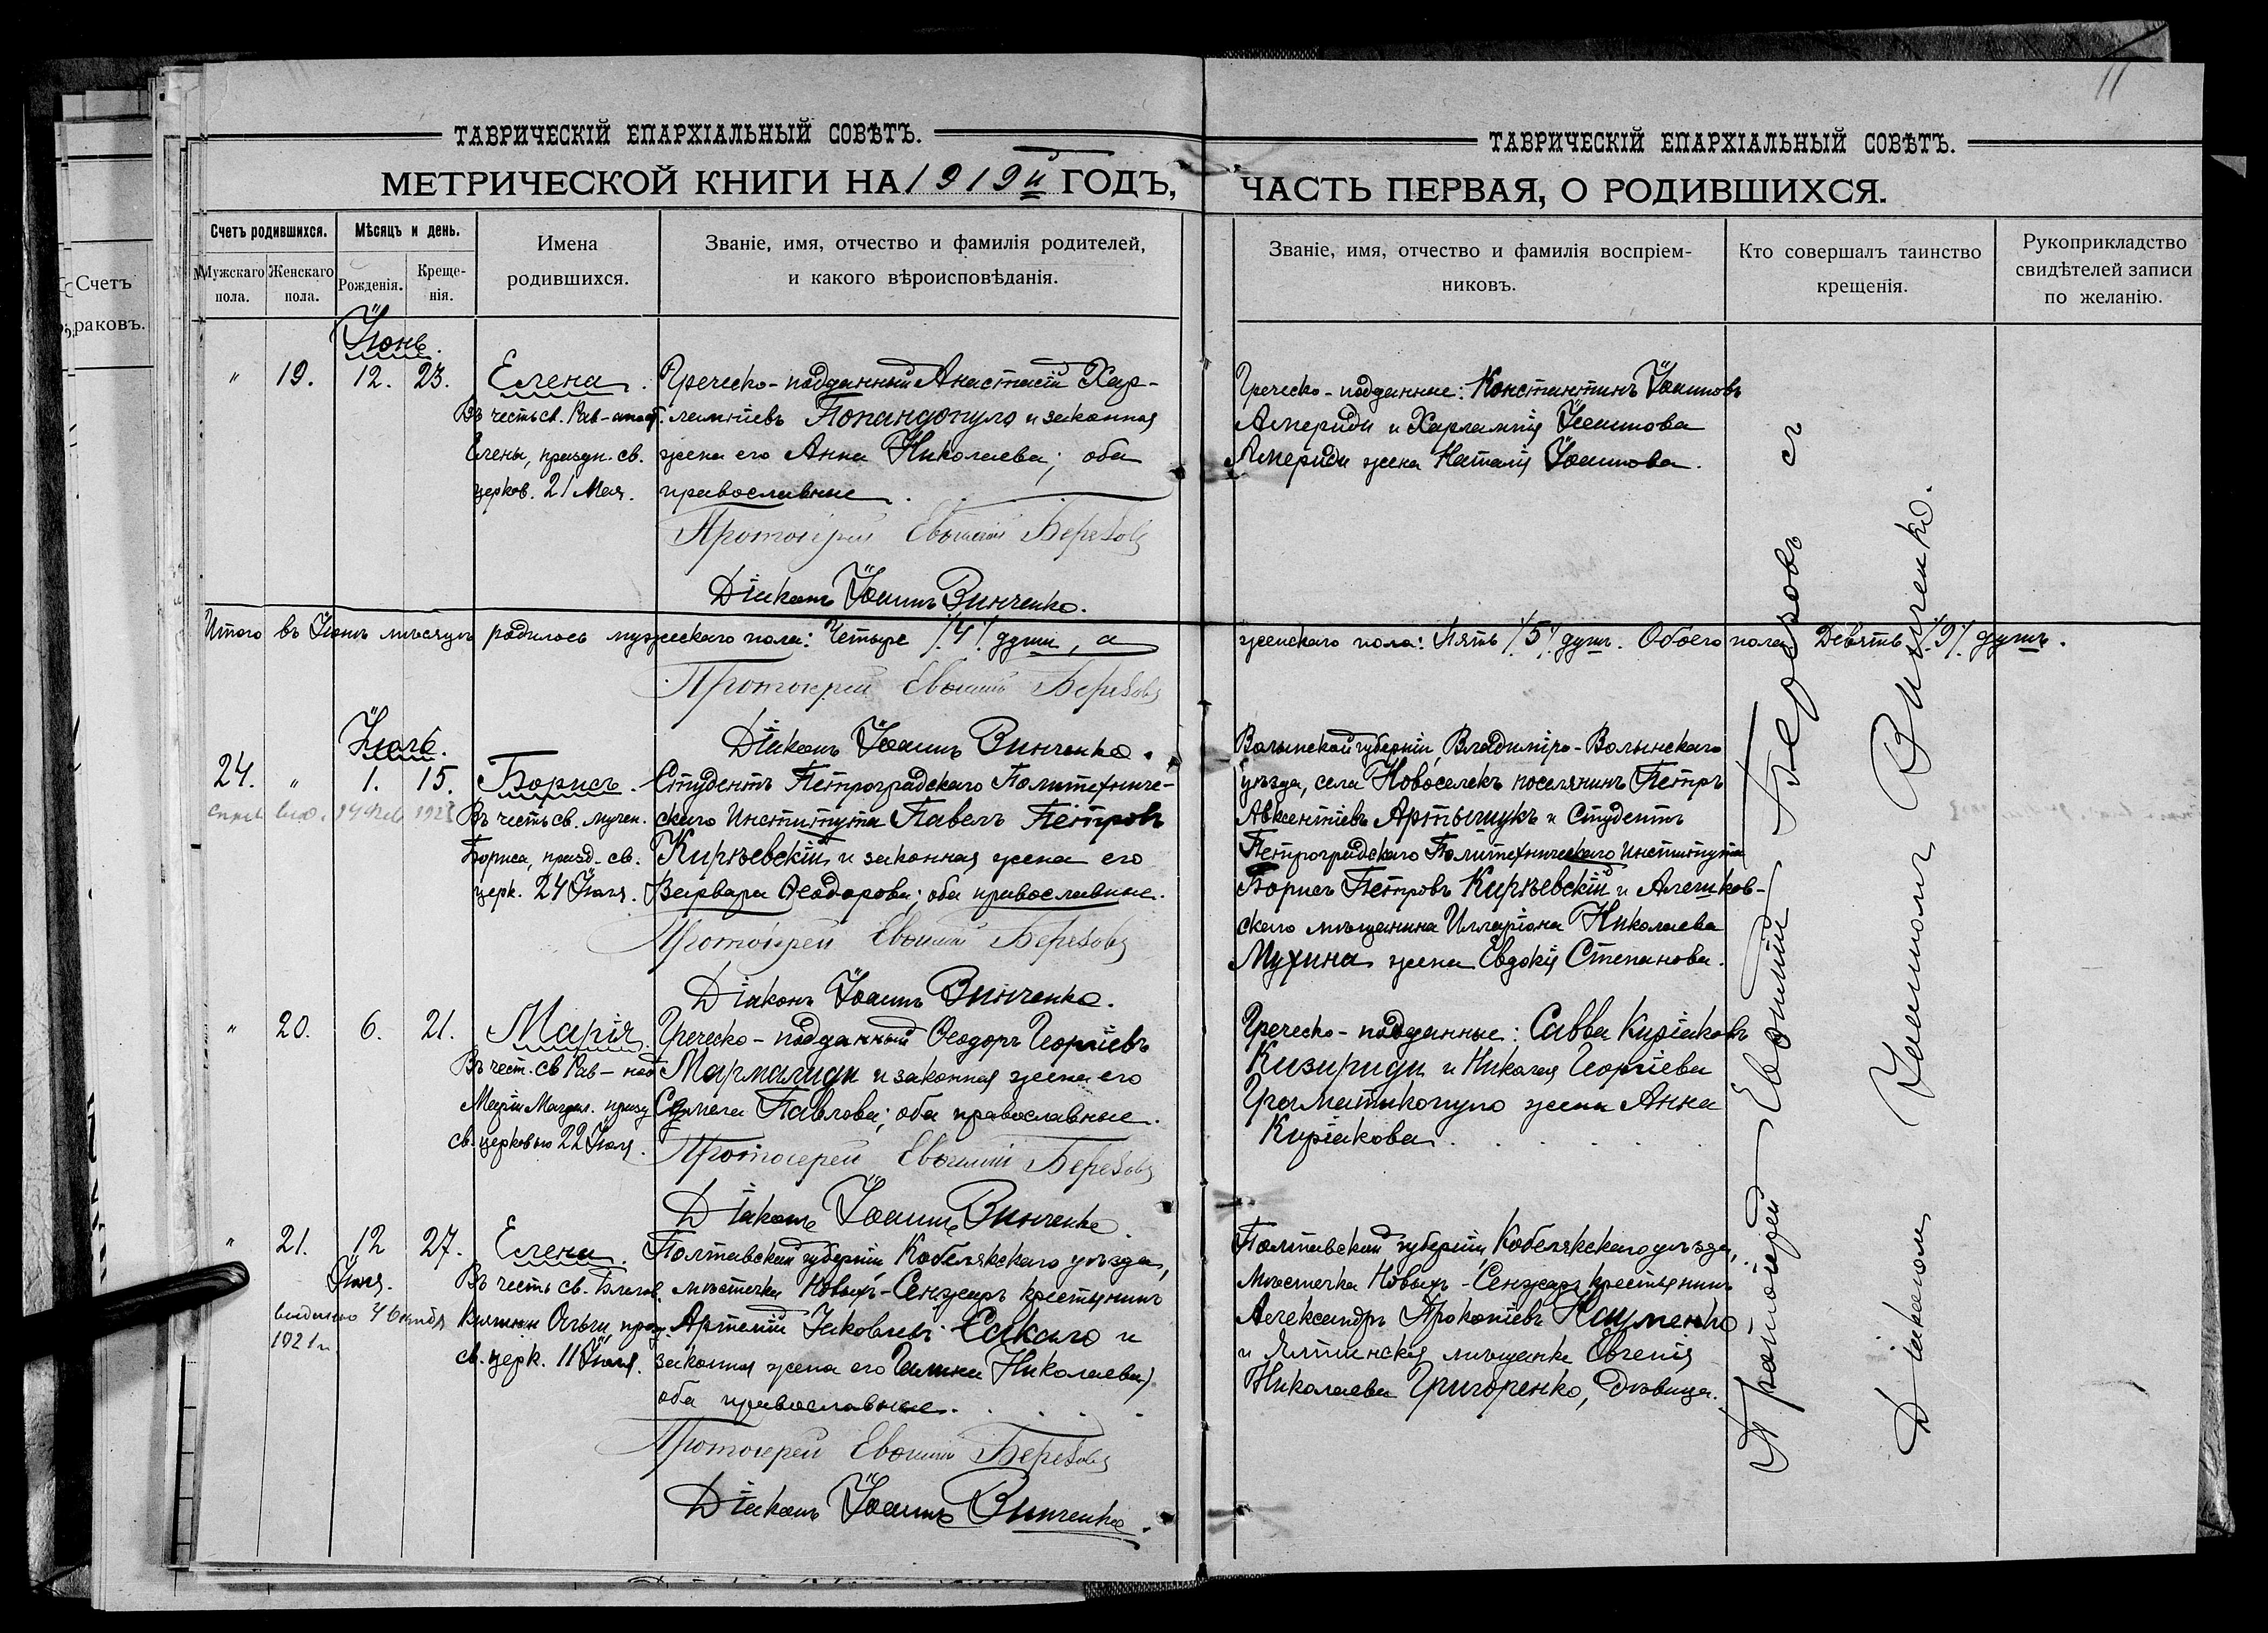 11
ТАВРИЧЕСКІЙ ЕПАРХІАЛЬНЫЙ СОВѢТЪ.
МЕТРИЧЕСКОЙ КНИГИ НА 1919й ГОДЪ,
Счетъ родившихся.
Мужскаго пола.
Женскаго пола.
Мѣсяцъ и день.
Рожденія.
Крещенія.
Имена
родившихся.
Званіе, имя, отчество и фамилія родителей,
и какого вѣроисповѣданія.
Счетъ
раковъ.
Іюнь.
" 19. 12. 23.
Елена.
Въ честь св. Рав-апост.
Елены, праздн. св.
церков. 21 Мая.
Греческо-подданный Анастасій Хар-
лампіевъ Попандопуло и законная
жена его Анна Николаева; оба
православные.
Протоіерей Евѳимій Березовъ
Діаконъ Іоаннъ Винченко.
Итого въ Іюнѣ мѣсяцѣ родилось мужескаго пола: Четыре /.4./ души, а
Протоіерей Евѳимій Березовъ
Діаконъ Іоаннъ Винченко.
Іюль.
24. " 1. 15.
Борисъ.
Въ честь св. мучен.
Бориса, празд. св.
церк. 24 Іюля.
Студентъ Петроградскаго Политехниче-
скаго Института Павелъ Петровъ
Кирѣевскій и законная жена его
Варвара Ѳеодорова; оба православные.
Протоіерей Евѳимій Березовъ
Діаконъ Іоаннъ Винченко.
" 20. 6. 21.
Марія.
Въ чест. св Рав-
Маріи Магдал. празд
св. церковью 22 Іюля.
Греческо-подданный Ѳеодоръ Георгіевъ
Мармалиди и законная жена его
Павлова; оба православные.
Протоіерей Евѳимій Березовъ
Діаконъ Іоаннъ Винченко
" 21. 12 27.
Іюля.
1921 г.
Елена.
Въ честь св. Благов.
Княгини Ольги, празд.
св. церк. 11 Іюля.
Полтавской губерніи, Кобелякскаго уѣзда,
мѣстечка Новыхъ-Сенжаръ крестьянинъ
Артемій Іаковлевъ Сакало и
законная жена его Галина Николаева;
оба православные.
Протоіерей Евѳимій Березовъ
Діаконъ Іоаннъ Винченко.
ТАВРИЧЕСКІЙ ЕПАРХІАЛЬНЫЙ СОВѢТЪ.
ЧАСТЬ ПЕРВАЯ, О РОДИВШИХСЯ.
Званіе, имя, отчество и фамилія воспріем-
никовъ.
Кто совершалъ таинство
крещенія.
Рукоприкладство
свидѣтелей записи
по желанію.
Греческо-подданные: Константинъ Іоанновъ
Америди и Харлампія Іоаннова
Америди жена Наталія Іоаннова.
женскаго пола: Пять /.5./ душъ. Обоего пола Девять /.9./ душъ.
Волынской губерніи, Владиміро-Волынскаго
уѣзда, села Новоселекъ поселянинъ Петръ
Авксентіевъ Артыщукъ и Студентъ
Петроградскаго Политехническаго Института
Борисъ Петровъ Кирѣевскій и Алешков-
скаго мѣщанина Илларіона Николаева
Мухина жена Евдокія Степанова.
Греческо-подданные: Савва Киріаковъ
Кизириди и Николая Георгіева
Грамматикопуло жена Анна
Киріакова.
Полтавской губерніи, Кобелякскаго уѣзда,
мѣстечка Новыхъ-Сенжаръ крестьянинъ
Александръ Прокопіевъ Науменко
и Ялтинская мѣщанка Евгенія
Николаева Григоренко, дѣвица.
Протоіерей Евѳимій Березовъ съ
Діакономъ Іоанномъ Винченко.